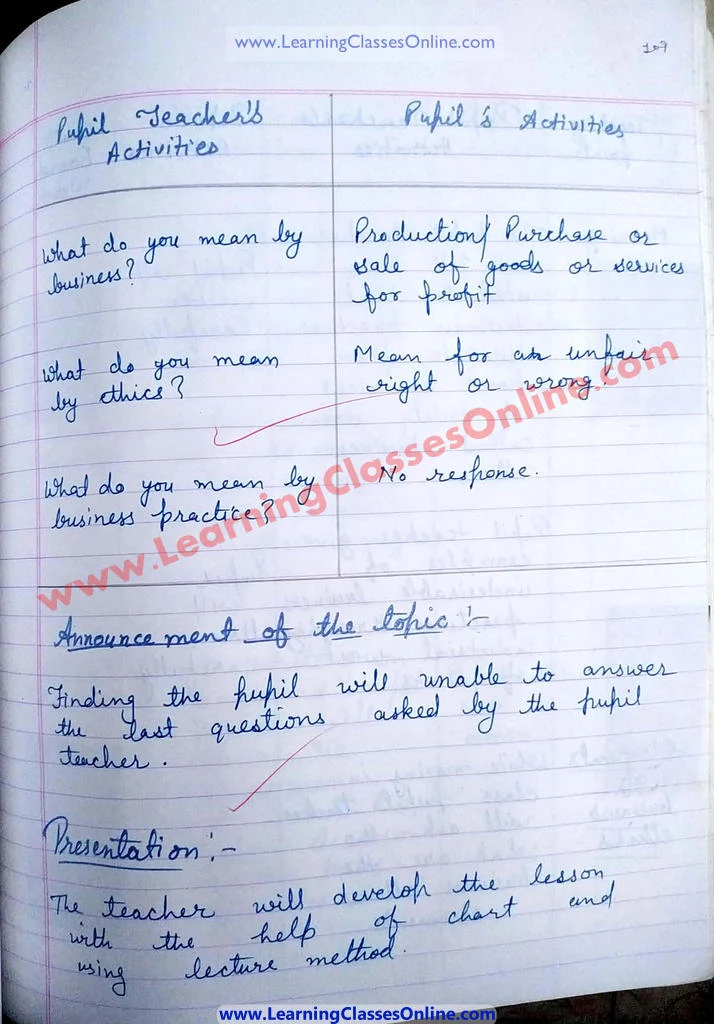 www.LearningClassesOnline.com
107
Pupil Teacher's
Activities
Pupil's Activities
What do you mean by
business?
Production/ Purchase or
sale of goods or services
for profit
What do you mean
by ethics?
Mean for an unfair
right or wrong.
What do you mean by
business practice?
No response.
www.LearningClassesOnline.com
Announcement of the topic :-
Finding the pupil will unable to answer
the last questions asked by the pupil
teacher.
Presentation :-
The teacher will develop the lesson
with the help of chart and
using lecture method.
www.LearningClassesOnline.com